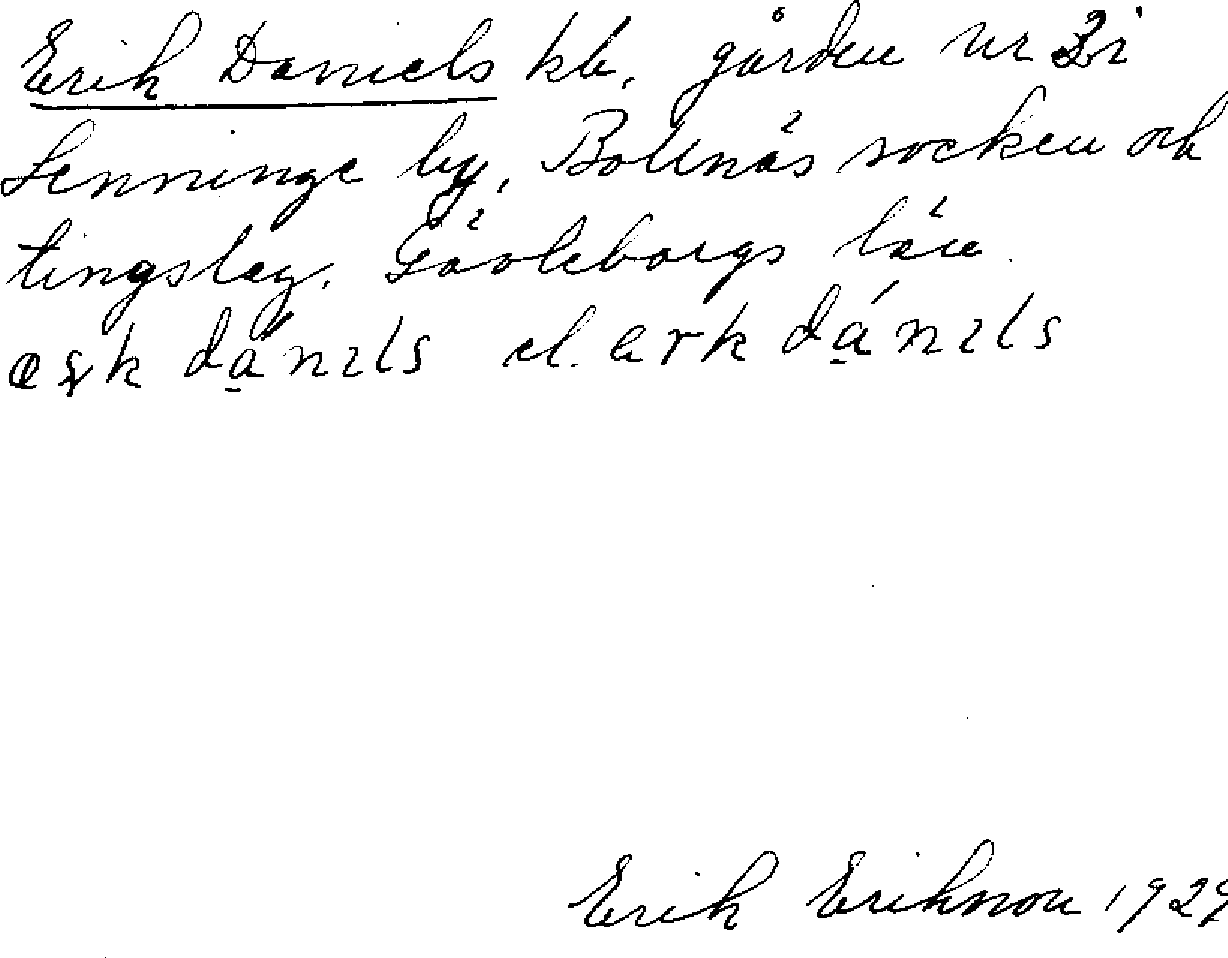 Erik Daniels kb. gården nr 3 i
Lenninge by, Bollnäs socken och
tingslag. Gävleborgs län.
ark dánɩls el. ark dánɩls
Erik Eriksson 1929